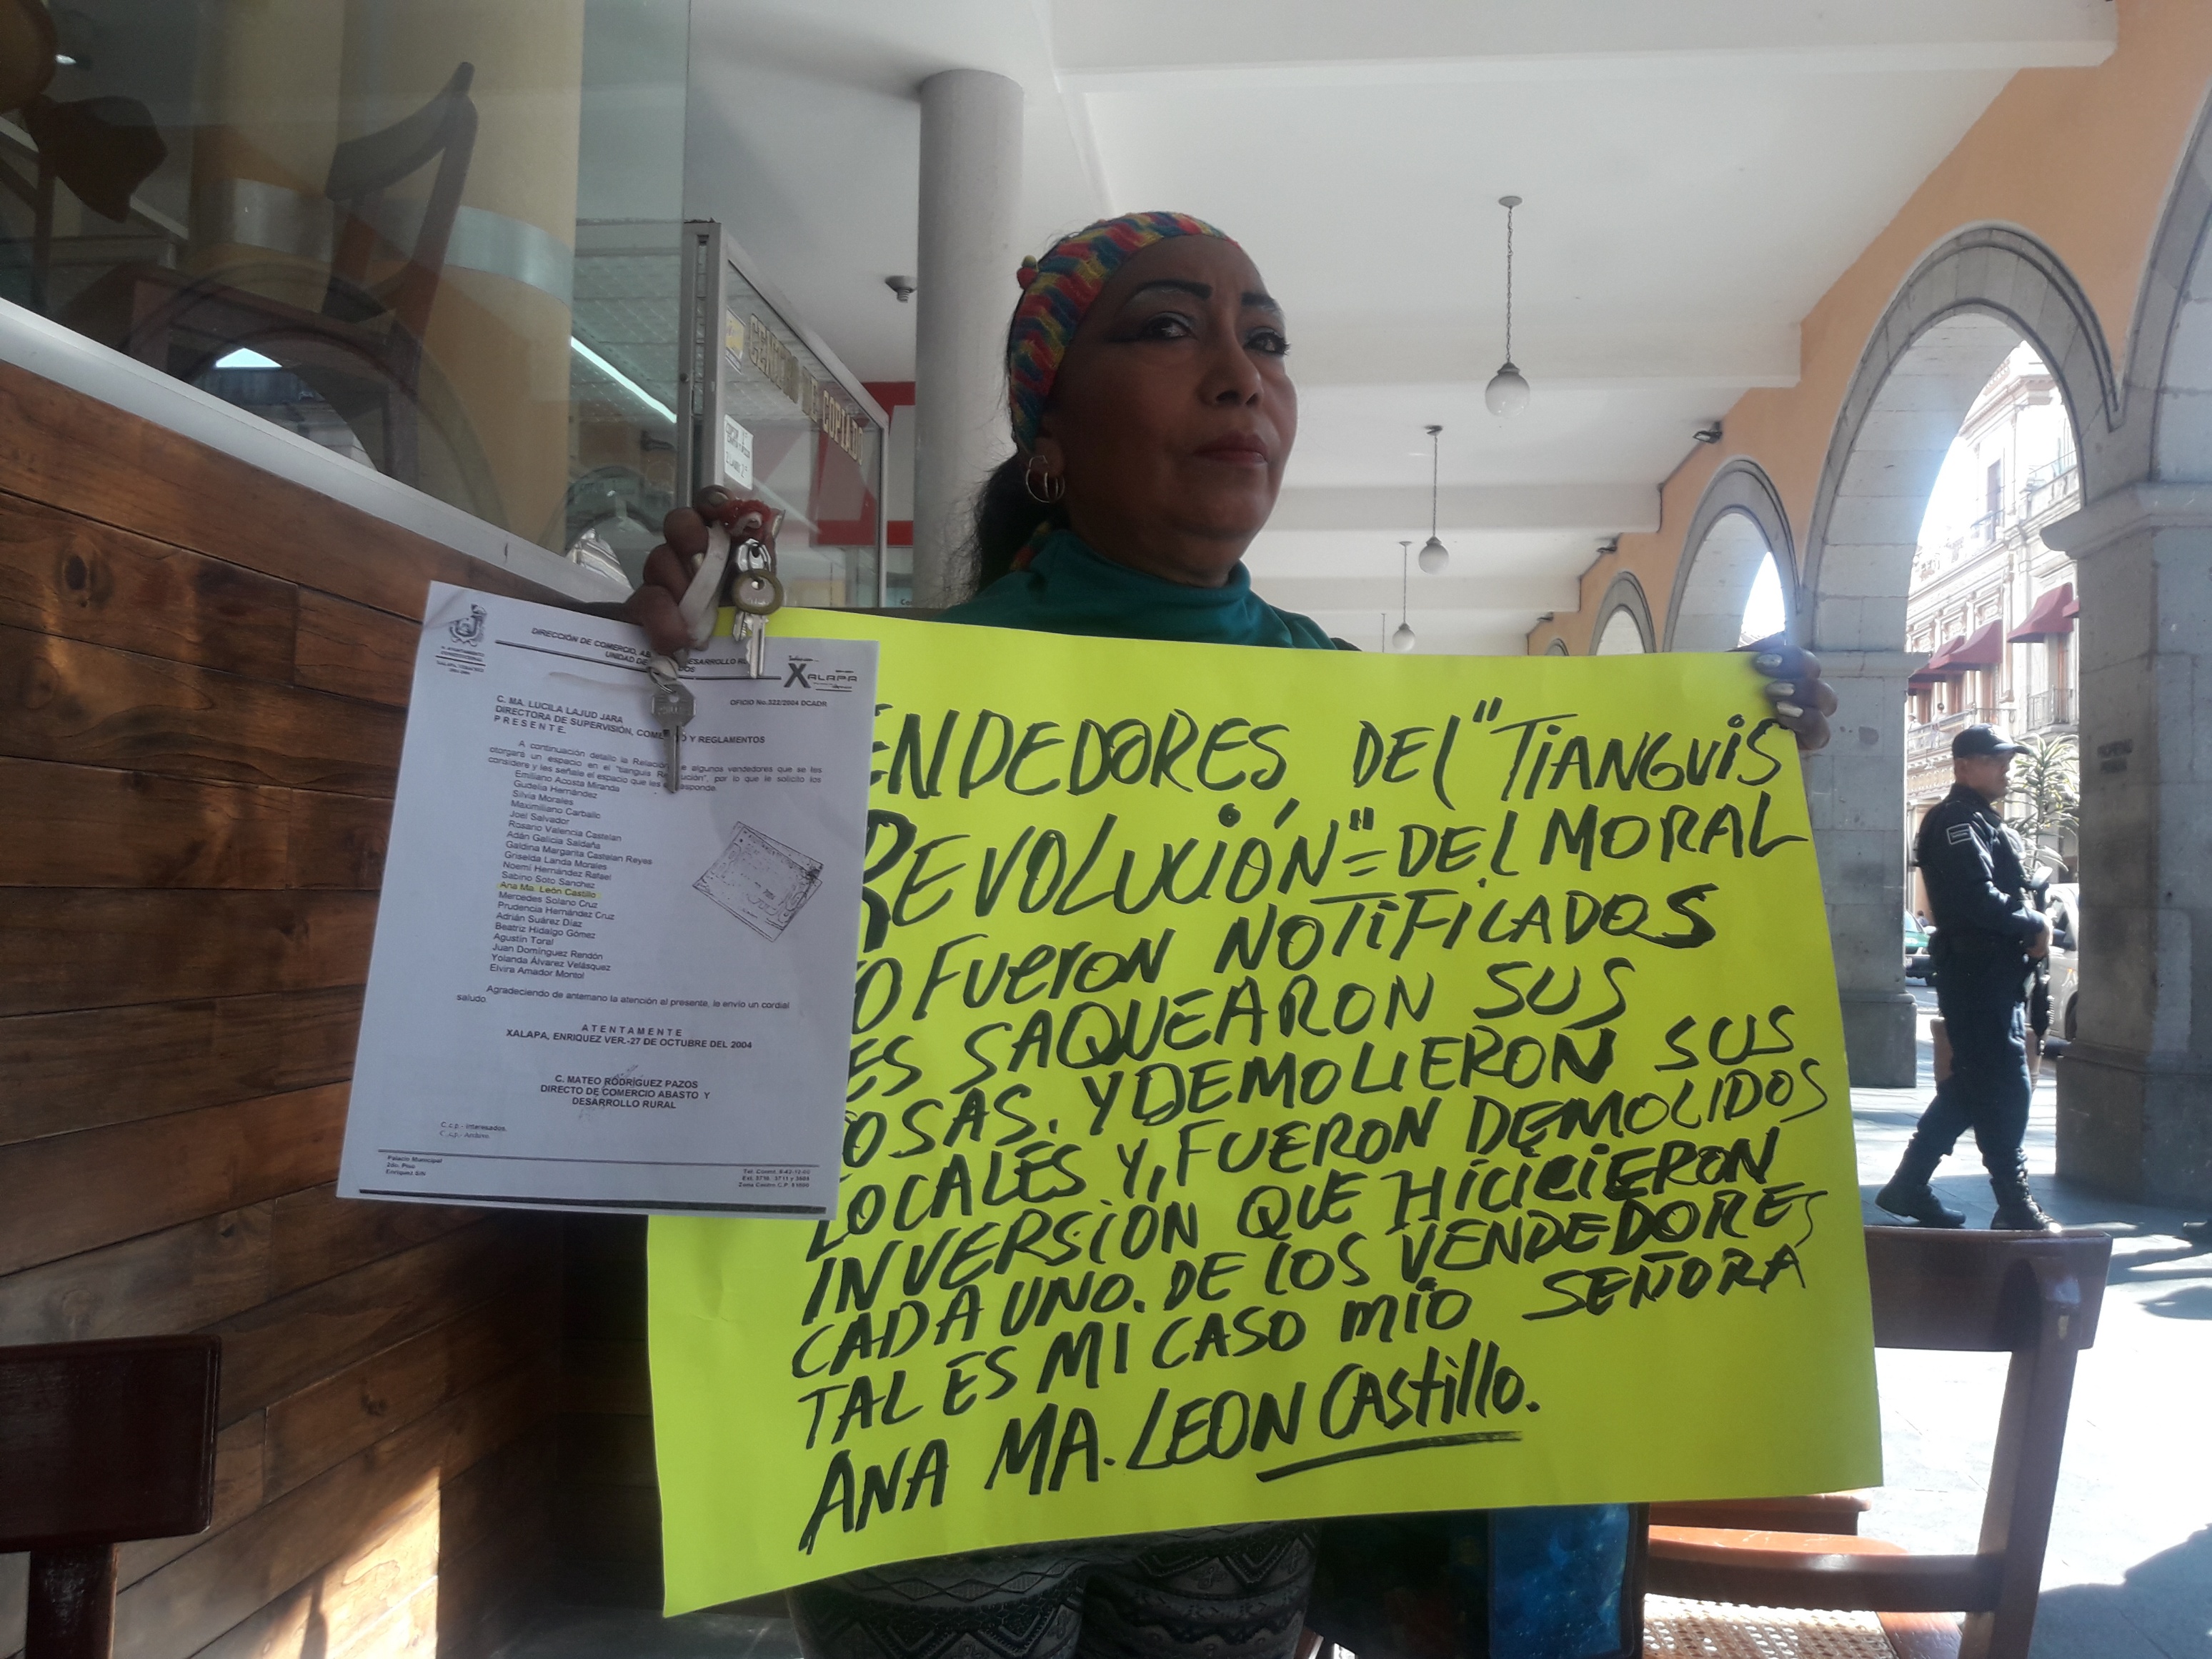 CENTRO DE COPIADO
H. AYUNTAMIENTO
CONSTITUCIONAL
DIRECCIÓN DE COMERCIO, DESARROLLO
UNIDAD DE
XALAPA
OFICIO No.322/2004 DCADR
C. MA. LUCILA LAJUD JARA
DIRECTORA DE SUPERVISIÓN, Y REGLAMENTOS
P R E S E N T E.
A continuación detallo la algunos vendedores que se les
otorgará un espacio en el "tianguis por lo que le solicito los
considere y les señale el espacio que les
Emiliano Acosta Miranda
Gudelia Hernández
Silvia Morales
Maximiliano Carballo
Joel Salvador
Rosario Valencia Castelan
Adán Galicia Saldaña
Galdina Margarita Castelan Reyes
Griselda Landa Morales
Noemi Hernández Rafael
Sabino Soto Sanchez
Ana Ma. León Castillo
Mercedes Solano Cruz
Prudencia Hernández Cruz
Adrián Suárez Díaz
Beatriz Hidalgo Gómez
Agustín Toral
Juan Domínguez Rendón
Yolanda Álvarez Velásquez
Elvira Amador Montol
Agradeciendo de antemano la atención al presente, le envío un cordial
saludo.
A T E N T A M E N T E
XALAPA, ENRIQUEZ VER.-27 DE OCTUBRE DEL 2004
C. MATEO RODRÍGUEZ PAZOS
DIRECTO DE COMERCIO ABASTO Y
DESARROLLO RURAL
C.c.p.- Interesados.
C.c.p.- Archivo.
Palacio Municipal
2do. Piso
Enríquez S/N
Zona Centro C.P. 91000
ENDEDORES, DEL "TIANGUIS
REVOLUCIÓN" = DEL MORAL
O FUERON NOTIFICADOS
ES SAQUEARON SUS
OSAS. Y DEMOLIERON SUS
LOCALES Y, FUERON DEMOLIDOS
INVERSION QUE HICICIERON
CADA UNO. DE LOS VENDEDORES
TAL ES MI CASO MIO SEÑORA
ANA MA. LEON CASTILLO.